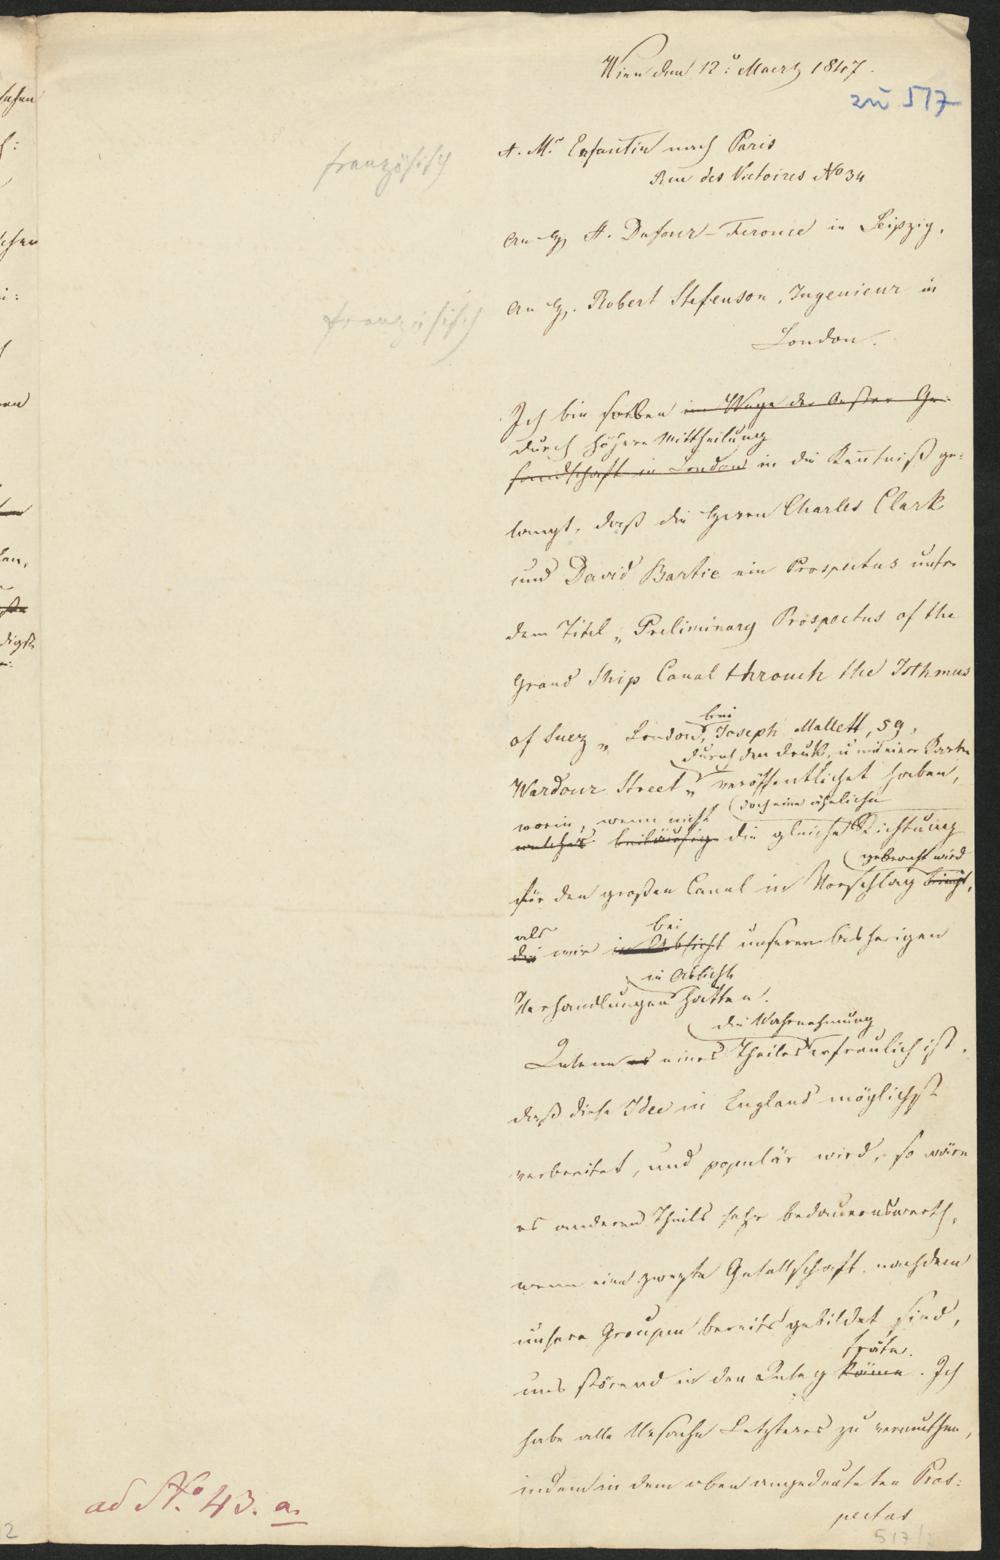 Wien den 12: Maerz 1847.
zu 517
A. Mr. Enfantin nach Paris
französisch
Rue des Victoires No 34
An H. A. Dufour-Feronce in Leipzig,
An H. Robert Stefenson, Ingenieur in
französisch
London.
Ich bin soeben im Wege der Großen Ge-
durch höhere Mittheilung
sandtschaft in London in die Kenntniß ge-
langt, daß die Herren Charles Clark
und David Bartie ein Prospectus unter
dem Titel „Preliminary Prospectus of the
Grand Ship Canal throuch the Isthmus
bei
of Suez „ London, Joseph Mallett, 59,
durch den Druck, u mit einer Karte
Wardour Street „ veröffentlichet haben,
worin, wenn nicht doch eine ähnliche
welches beiläufig die gleiche Richtung
gebracht wird
für den großen Canal in Vorschlag bringt,
als bei
die wir in Absicht unseren bisherigen
in Absicht
Verhandlungen hatten.
die Wahrnehmung
Indem es eines Theiles erfreulich ist,
daß diese Idee in England möglichst
verbreitet, und populär wird, so wäre
es anderen Theils sehr bedauernswerth,
wenn eine zweyte Gesellschaft, nachdem
unsere Groupen bereits gebildet sind,
träte.
uns störend in den Weg käme. Ich
habe alle Ursache Letzteres zu vermuthen,
indem in dem oben angedeuteten Pros-
pectus
ad No. 43. a.
517/